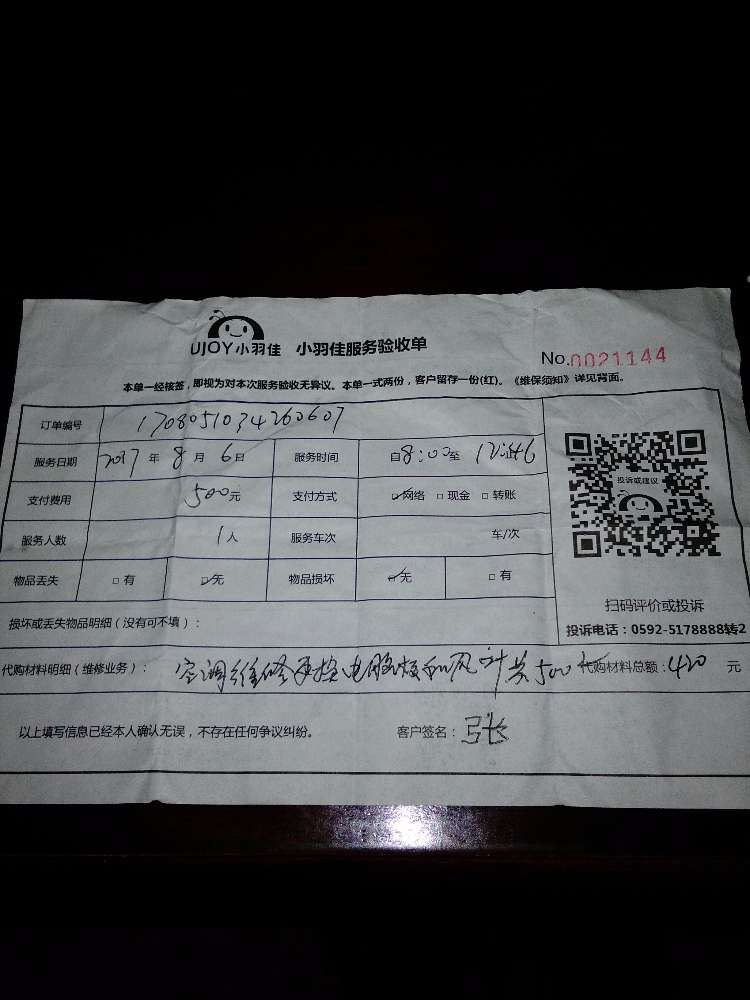 UJOY小羽佳 小羽佳服务验收单
No.0021144
本单一经核签，即视为对本次服务验收无异议。本单一式两份，客户留存一份(红)。《维保须知》详见背面。
订单编号 1708051034260607
服务日期 2017年8月6日 服务时间 自8:00至12:
支付费用 500元 支付方式 ☑网络 □现金 □转账
服务人数 1人 服务车次 车/次
物品丢失 □有 ☑无 物品损坏 ☑无 □有
投诉或建议
扫码评价或投诉
投诉电话：0592-5178888转2
损坏或丢失物品明细（没有可不填）：
代购材料明细（维修业务）： 空调维修更换电脑板和风叶共500 代购材料总额：420 元
以上填写信息已经本人确认无误，不存在任何争议纠纷。 客户签名：张